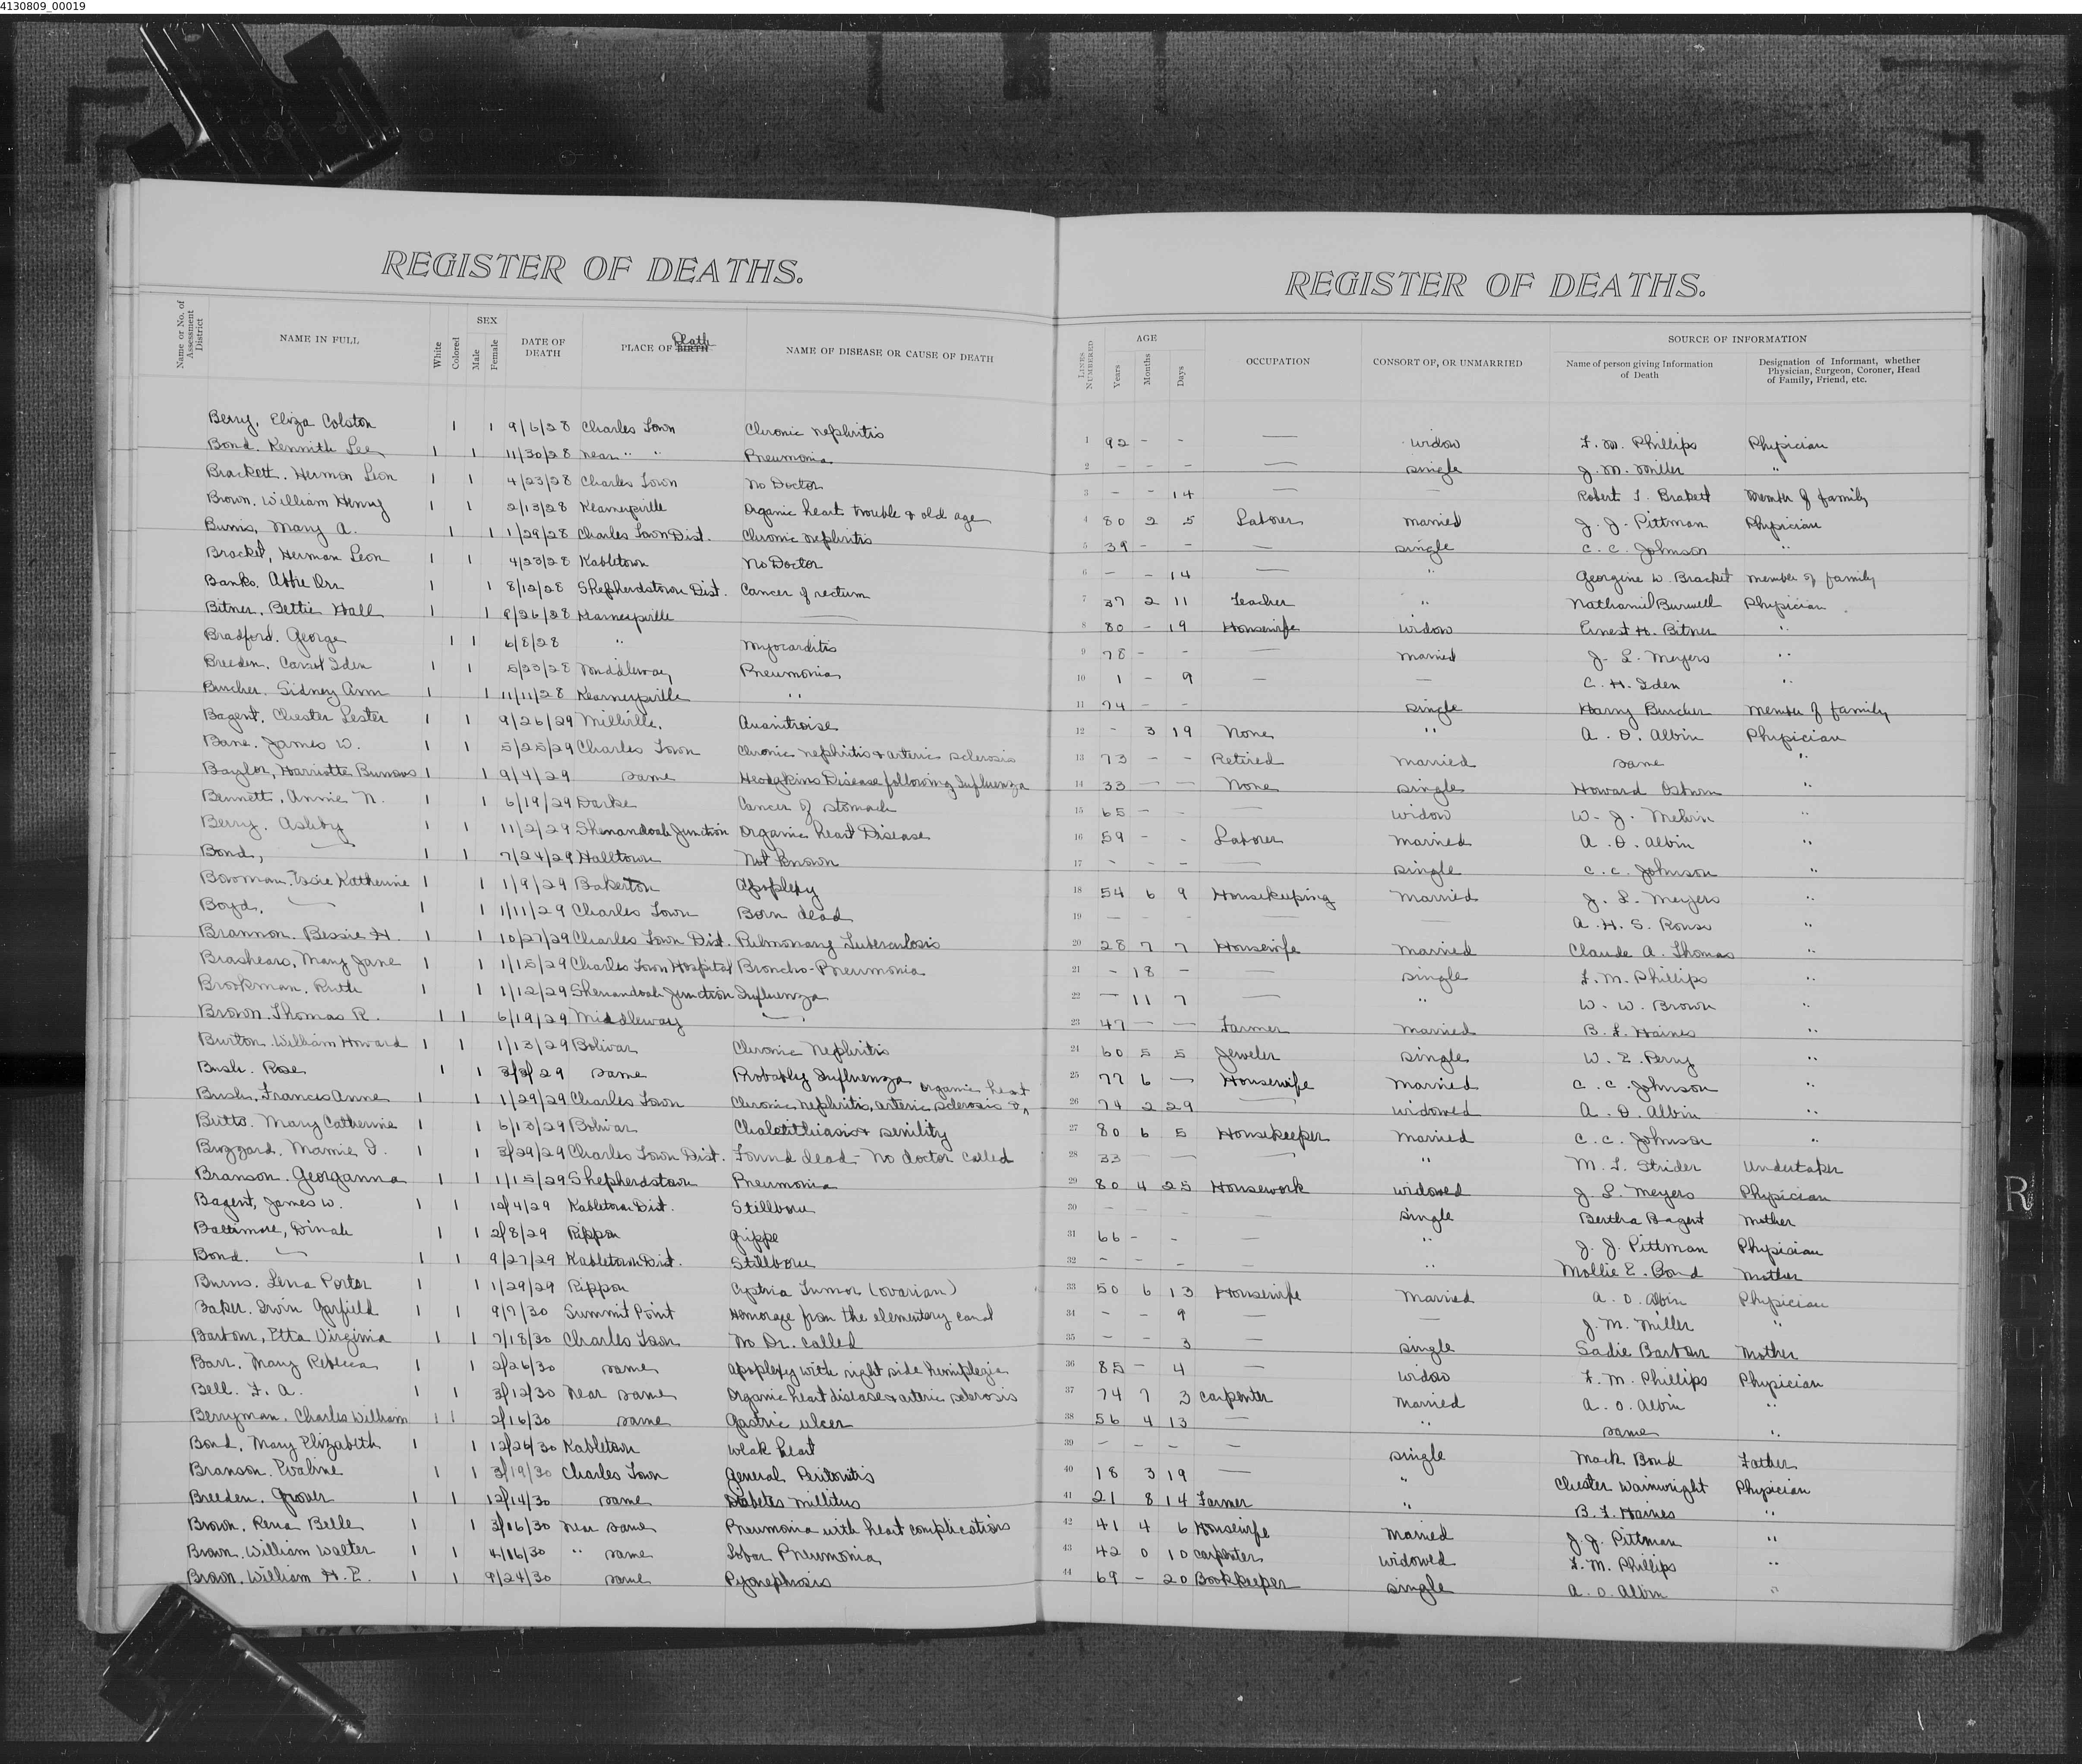 4130809_00019
REGISTER OF DEATHS.
Name or No. of Assessment District NAME IN FULL White Colored SEX Male Female DATE OF DEATH PLACE OF BIRTH Death NAME OF DISEASE OR CAUSE OF DEATH
Berry, Eliza Colston 1 1 9/6/28 Charles Town Chronic nephritis
Bond, Kennith Lee 1 1 11/30/28 near " " Pneumonia
Brackett, Hermon Leon 1 1 4/23/28 Charles Town No Doctor
Brown, William Henry 1 1 2/13/28 Kearneysville Organic heart trouble & old age
Burris, Mary A. 1 1 1/29/28 Charles Town Dist. Chronic nephritis
Bracket, Herman Leon 1 1 4/23/28 Kabletown No Doctor
Banks, Abbie Orr 1 1 8/12/28 Shepherdstown Dist. Cancer of rectum
Bitner, Bettie Hall 1 1 9/26/28 Kearneysville —
Bradford, George 1 1 6/8/28 " Myocarditis
Breeden, Carrol Iden 1 1 5/23/28 Middleway Pneumonia
Burcher, Sidney Ann 1 1 11/11/28 Kearneysville "
Bagent, Chester Lester 1 1 9/26/29 Millville,
Bane, James W. 1 1 5/25/29 Charles Town Chronic nephritis & arterio sclerosis
Baylor, Harriette Burrows 1 1 9/4/29 same Hodgkins Disease following Influenza
Bennett, Annie N. 1 1 6/19/29 Darke Cancer of stomach
Berry, Ashby 1 1 11/2/29 Shenandoah Junction Organic heart Disease
Bond, — 1 1 7/24/29 Halltown Not known
Bowman, Katherine 1 1 1/9/29 Bakerton Apoplexy
Boyd, — 1 1 1/11/29 Charles Town Born dead
Brannon, Bessie H. 1 1 10/27/29 Charles Town Dist. Pulmonary Tuberculosis
Brashears, Mary Jane 1 1 1/15/29 Charles Town Hospital Broncho-Pneumonia
Brookman, Ruth 1 1 1/12/29 Shenandoah Junction Influenza
Brown, Thomas R. 1 1 6/19/29 Middleway —
Burton, William Howard 1 1 1/13/29 Bolivar Chronic Nephritis
Bush, Rose 1 1 3/3/29 same Probably Influenza
Bush, Francis Anne 1 1 1/29/29 Charles Town Chronic nephritis, arterio sclerosis & organic heart
Butts, Mary Catherine 1 1 6/13/29 Bolivar Cholelithiasis & senility
Buzzard, Mamie V. 1 1 3/29/29 Charles Town Dist. Found dead - No doctor called
Branson, Georganna 1 1 1/15/29 Shepherdstown Pneumonia
Bagent, James W. 1 1 12/4/29 Kabletown Dist. Stillborn
Baltimore, Dinah 1 1 2/8/29 Rippon Grippe
Bond, — 1 1 9/27/29 Kabletown Dist. Stillborn
Burns, Lena Porter 1 1 1/29/29 Rippon Cystria Tumor (ovarian)
Baker, Irvin Garfield 1 1 9/7/30 Summit Point Homorage from the elementary canal
Barbour, Etta Virginia 1 1 7/18/30 Charles Town No Dr. called
Barr, Mary Rebecca 1 1 2/26/30 same Apoplexy with right side hemiplegia
Bell, F. A. 1 1 3/12/30 Near same Organic heart disease & arterio sclerosis
Berryman, Charles William 1 1 2/16/30 same Gastric ulcer
Bond, Mary Elizabeth 1 1 12/26/30 Kabletown Weak heart
Branson, Evaline 1 1 3/19/30 Charles Town General Peritonitis
Breeden, Grover 1 1 12/14/30 same Diabetes Millitus
Brown, Rena Belle 1 1 3/16/30 near same Pneumonia with heart complications
Brown, William Walter 1 1 4/16/30 " same Lobar Pneumonia
Brown, William H. E. 1 1 9/24/30 same Pyonephosis
REGISTER OF DEATHS.
LINES NUMBERED AGE Years Months Days OCCUPATION CONSORT OF, OR UNMARRIED SOURCE OF INFORMATION Name of person giving Information of Death Designation of Informant, whether Physician, Surgeon, Coroner, Head of Family, Friend, etc.
1 92 - - — widow F. M. Phillips Physician
2 - - - — single J. M. Miller "
3 - - 14 — — Robert T. Brakett Member of family
4 80 2 5 Laborer married J. J. Pittman Physician
5 39 - - — single C. C. Johnson "
6 - - 14 — " Georgine W. Bracket member of family
7 37 2 11 Teacher " Nathaniel Burwell Physician
8 80 - 19 Housewife widow Ernest H. Bitner "
9 78 - - — married J. L. Meyers "
10 1 - 9 — — C. H. Iden "
11 74 - - single Harry Burcher member of family
12 - 3 19 None " A. O. Albin Physician
13 73 - - Retired married same "
14 33 - - None single Howard Osburn "
15 65 - - — widow W. J. Melvin "
16 59 - - Laborer married A. O. Albin "
17 - - - — single C. C. Johnson "
18 54 6 9 Housekeeping married J. L. Meyers "
19 - - - — — A. H. S. Rouse "
20 28 7 7 Housewife married Claude A. Thomas "
21 - 18 - — single F. M. Phillips "
22 - 11 7 — " W. W. Brown "
23 47 - - Farmer married B. F. Haines "
24 60 5 5 Jeweler single W. E. Perry "
25 77 6 - Housewife married C. C. Johnson "
26 74 2 29 — widowed A. O. Albin "
27 80 6 5 Housekeeper married C. C. Johnson "
28 33 - - — " M. T. Strider Undertaker
29 80 4 25 Housework widowed J L. Meyers Physician
30 - - - — single Bertha Bagent Mother
31 66 - - — " J. J. Pittman Physician
32 - - - — " Mollie E. Bond Mother
33 50 6 13 Housewife married A. O. Albin Physician
34 - - 9 — — J. M. Miller "
35 - - 3 — single Sadie Barbour Mother
36 85 - 4 — widow F. M. Phillips Physician
37 74 7 3 carpenter married A. O. Albin "
38 56 4 13 — " same "
39 - - - — single Mack Bond Father
40 18 3 19 — " Chester Wainwright Physician
41 21 8 14 Farmer " B. F. Haines "
42 41 4 6 Housewife married J. J. Pittman "
43 42 0 10 carpenter widowed F. M. Phillips "
44 69 - 20 Bookkeeper single A. O. Albin "
R